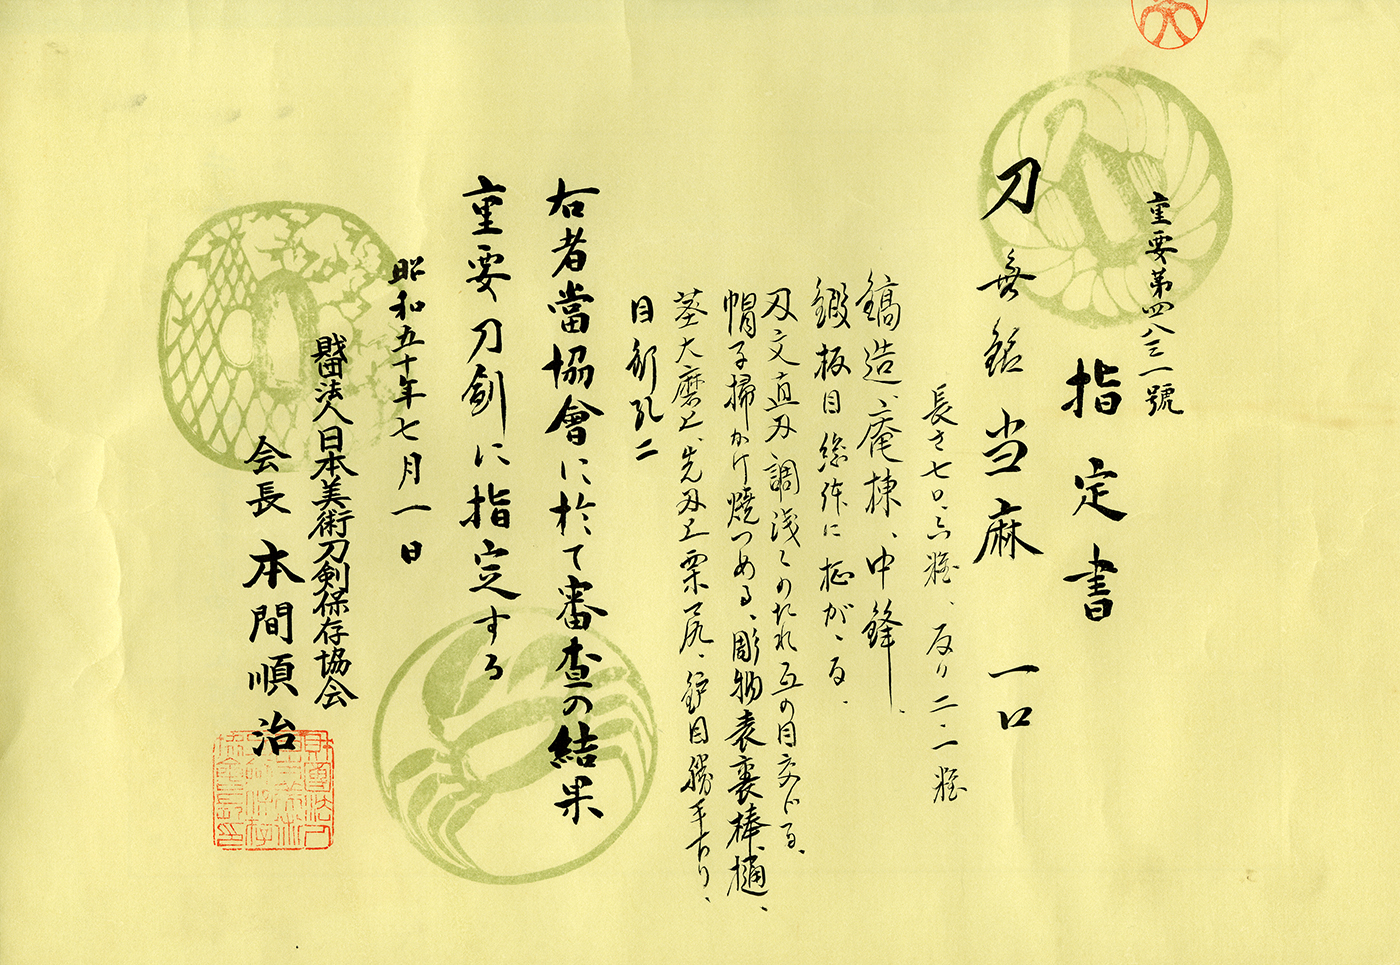 重要第四八三一號
指定書
刀 無銘 当麻 一口
長さ七〇・六糎、反り二・一糎
鎬造、庵棟、中鋒、
鍛板目総体に柾がゝる、
刃文直刃調浅くのたれ互の目交じる、
帽子掃かけ焼つめる、彫物表裏棒樋、
茎大磨上、先刃上栗尻、鑢目勝手下り、
目釘孔二
右者當協會に於て審査の結果
重要刀剣に指定する
昭和五十年七月一日
財団法人日本美術刀剣保存協会
会長 本間順治